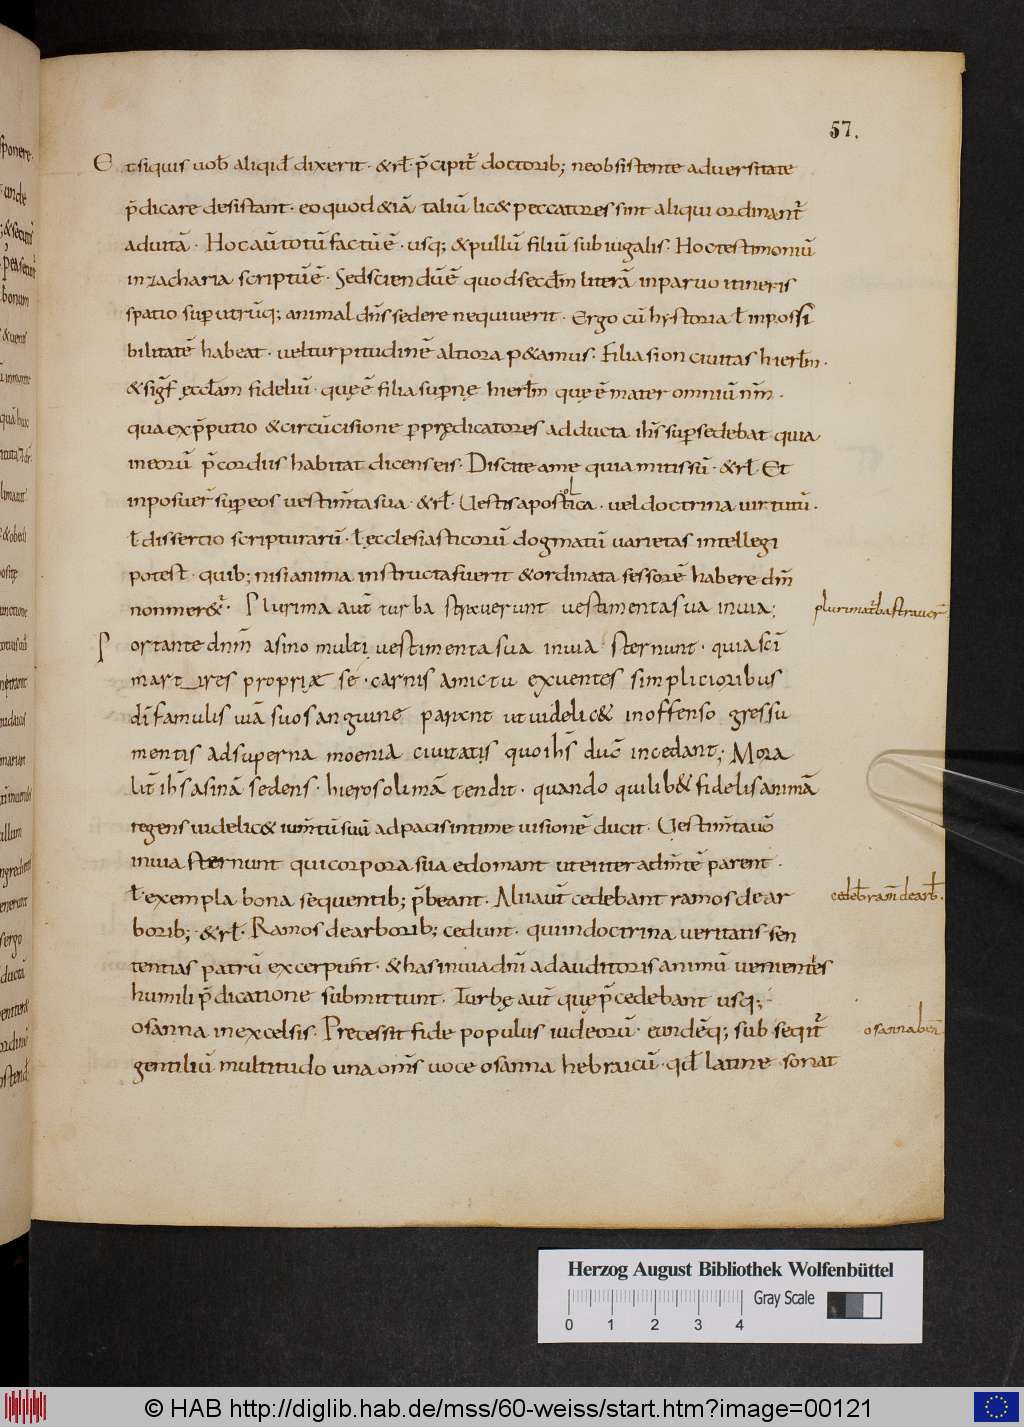 57.
Et siquis uob̄ aliqid̄ dixerit · &rł · p̄cipit̄ doctorib; ne obsistente aduersitate
p̄dicare desistant · eo quod &iā taliū lic& peccatores sint aliqui ordinant̄
ad uitā · Hoc aūt totū factū ē · usq; & pullū filiū subiugalis · Hoc testimoniū
in zacharia scriptū ē · Sed sciendū ē quod secdm̄ literā in paruo itineris
spatio sup utrūq; animal dn̄s sedere nequiuerit · Ergo cū hystoria ł inpossi
bilitatē habeat · uel turpitudinē altiora p&amus · Filia sion ciuitas hierł̄m ·
& sigf̄ ęccłam fideliū · quę ē filia supnę hierł̄m quę ē mater omniū nr̄m ·
qua ex p̄putio & circūcisione p prędicatores adducta ih̄s sup sedebat quia
in eorū p̄cordiis habitat dicens eis · Discite a me quia mitis sū · &rł · Et
inposuer̄ sup eos uestim̄ta sua · &rł · Uestis apostolica · uel doctrina uirtutū ·
ł dissertio scripturarū · ł ecclesiasticorū dogmatū uarietas intellegi
potest · quib; nisi anima instructa fuerit & ordinata sessorē habere dm̄
non mer&ur · Plurima aut̄ turba strauerunt uestimenta sua in uia ;
Portante dnm̄ asino multi uestimenta sua in uia sternunt · quia scī
martires propriæ se · carnis amictu exuentes simplicioribus
dī famulis uiā suo sanguine parant ut uidelic& inoffenso gressu
mentis ad superna moenia ciuitatis quo ih̄s duc̄ incedant ; Mora
lit̄ ih̄s asinā sedens · hierosolimā tendit · quando quilib& fidelis animā
regens uidelic& ium̄tū suū ad pacis intime uisionē ducit · Uestim̄ta uō
in uia sternunt qui corpora sua edomant ut ei iter ad m̄tē parent ·
ł exempla bona sequentib; p̄beant · Alii aut̄ cedebant ramos de ar
borib; · &rł · Ramos de arborib; cedunt · qui in doctrina ueritatis sen
tentias patrū excerpunt · & has in uia dn̄i ad auditoris animū uenientes
humili p̄dicatione submittunt · Turbę aut̄ quę p̄cedebant usq; ·
osanna in excelsis · Precessit fide populus iudeorū · eundēq; subsequit̄
gentiliū multitudo una oms̄ uoce osanna hebraicū · qd̄ latine sonat
plurima t̄ba strauer̄
cedeb̄ ram̄ de arb̄ ·
osanna ben̄
Herzog August Bibliothek Wolfenbüttel
Gray Scale
0 1 2 3 4
© HAB http://diglib.hab.de/mss/60-weiss/start.htm?image=00121